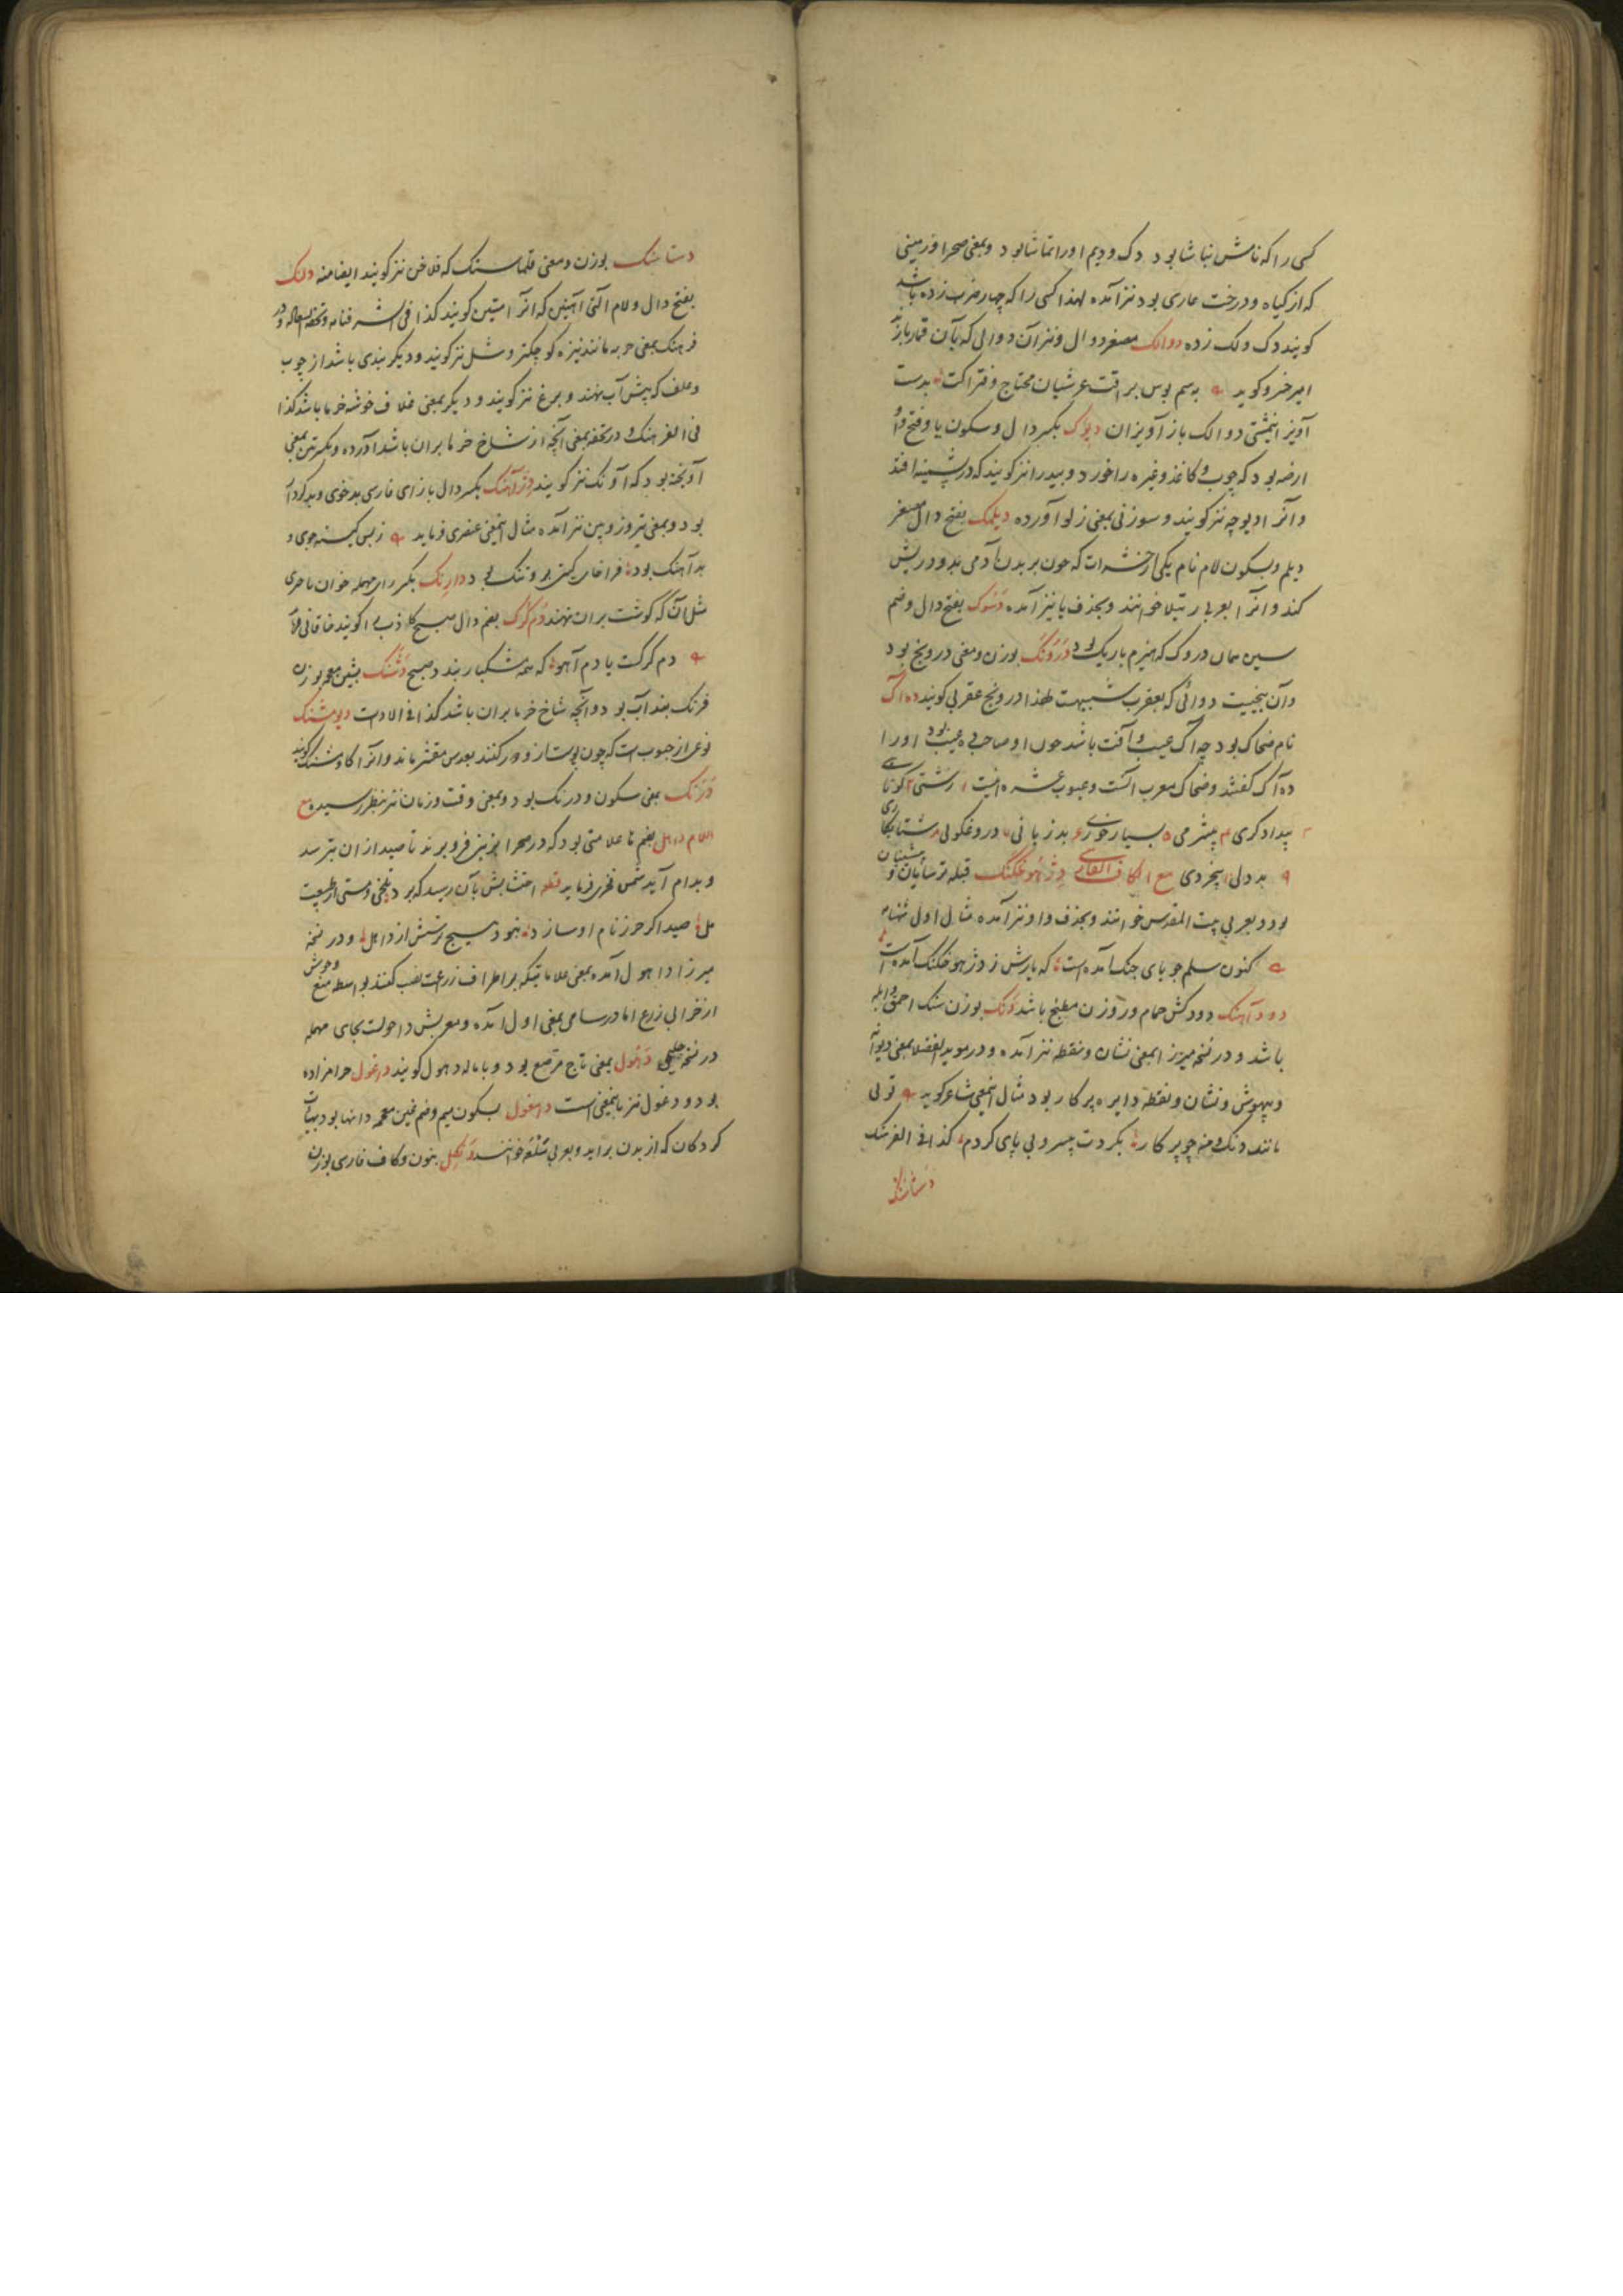 کسی را که نامش نباشا بود دک و دیم اورا تماشا بود و بمعنی صحرا و زمینی
که از گیاه و درخت عاری بود نیز آمده لهذا کسی را که چهار ضرب زده باشد
گویند دک و لک زده دوالک مصغر دوال و نیز آن دوالی که بآن قمار بازند
امیر خسرو گوید بدست
آویز دوالک باز آویزان دیوک بکسر دال و سکون یا و فتح واو
ارضه بود که چوب و کاغذ و غیره را خورد و بید را نیز گویند که در پشمینه افتد
و آنرا دیوچه نیز گویند و سوزنی بمعنی زلو آورده دیلمک بفتح دال مصغر
دیلم و بسکون لام نام یکی از حشرات که چون بر بدن آدمی بدود ریش
کند و آنرا بعربی رتیلا خوانند و بحذف یا نیز آمده دسوک بفتح دال و ضم
سین همان دروک که هیزم باریک بود درونک بوزن و معنی درونج بود
و آن بیخیست دوائی که بعقرب شبیهت لهذا درونج عقربی گویند ده آک
نام ضحاک بود چه آک عیب و آفت باشد چون او صاحب ده عیب بود اورا
ده آک گفتند و ضحاک معرب آنست و عیوب عشره اینست زشتی کوتاهی
بیدادگری بیشرمی بسیار خوری بدزبانی دروغگوئی شتابکاری
بددلی بیخردی مع الکاف الفارسی دژهوخکنک قبله ترسایان و
بود و بعربی بیت المقدس خوانند و بحذف واو نیز آمده مثال اول شهنامه
کنون سلم جویای جنگ آمده است که یارش ز دژهوخکنک آمده است
دودآهنک دودکش حمام و روزن مطبخ باشد دنک بوزن سنک احمق و ابله
باشد و در نسخه میرزا بمعنی نشان و نقطه نیز آمده و در موید الفضلا بمعنی دیوانه
و بیهوش و نشان و نقطه دایره پرکار بود مثال اینمعنی شاعر گوید توئی
مانند دنک و منه چو پرکار بکردت بسر و بی پای کردم کذا فی الفرهنک
دستاسنک
دستاسنک بوزن و معنی قلماسنک که فلاخن نیز گویند ایضا منه دلک
بفتح دال و لام آلتی آهنین که آنرا گویند کذا فی شرفنامه و تحفة السعادة و در
فرهنک بمعنی حربه مانند نیزه کوچکتر و شل نیز گویند و دیگر بندی باشد از چوب
و علف که پیش آب نهند و برغ نیز گویند و دیگر بمعنی غلاف خوشه خرما باشد کذا
فی الفرهنک و در تحفه بمعنی آنچه از شاخ خرما بران باشد آورده و بکسرتین بمعنی
آویخته بود که آونک نیز گویند دژآهنک بکسر دال با زای فارسی بدخوی و بدکردار
بود و بمعنی تیر و زوبین نیز آمده مثال اینمعنی عنصری فرماید ز بس کینه جوی و
بدآهنک بود فراخای گیتی برو تنک بود دارنک بکسر رای مهمله خوان ماحری
مثل آنکه گوشت بران نهند دم گرک بضم دال صبح کاذب را گویند خاقانی فرماید
دم گرگست یا دم آهو که همه مشکبار بندد صبح دشنک بشین معجمه بوزن
فرنک بندآب بود و آنچه شاخ خرما بران باشد کذا فی الادات دیومشنک
نوعی از حبوب است که چون پوست ازو دور کنند بعدس مقشر ماند و آنرا گاومشنک گویند
درنک بمعنی سکون و درنک بود و بمعنی وقت و زمان نیز بنظر رسیده مع
اللام داهل بضم ها علامتی بود که در صحرا بزمین فرو برند تا صید از ان بترسد
و بدام آید شمس فخری فرماید قطعه احتشابش بآن رسید که برد تلخی و مستی از طبیعت
مل صید اگر حرز نام او سازد نبود هیچ ترسش از داهل و در نسخه
میرزا داهول آمده بمعنی علاماتیکه بر اطراف زراعت نصب کنند بواسطه منع وحوش
از خرابی زرع اما در سامی بمعنی اول آمده و معربش داحولست بحای مهمله
در نسخه حلیمی دهول بمعنی تاج مرصع بود و باماله دهول گویند داغول حرامزاده
بود و دغول نیز باینمعنی است دمغول بسکون میم و ضم غین معجمه دانها بود بهیات
گردکان که از بدن براید و بعربی سلعه خوانند دنگل بنون و کاف فارسی بوزن